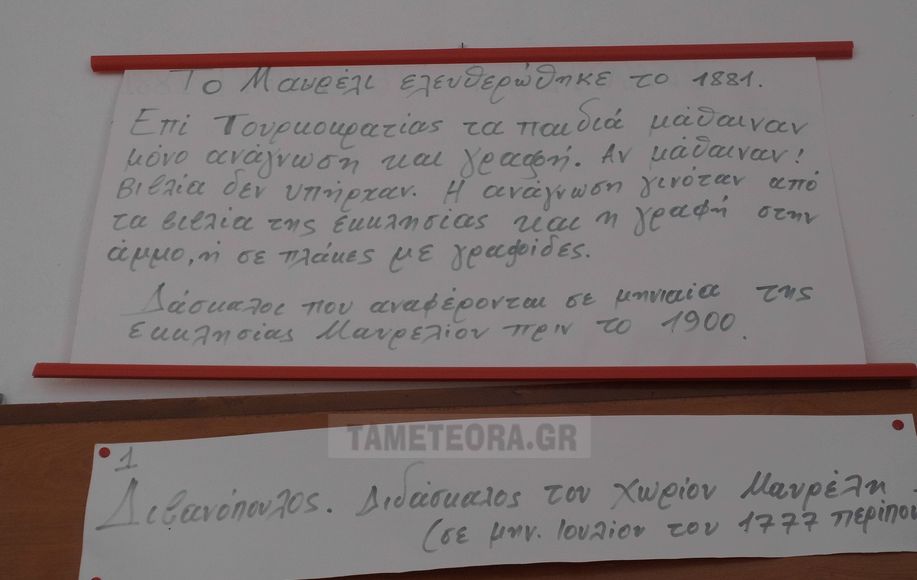 Το Μαυρέλι ελευθερώθηκε το 1881.
Επί Τουρκοκρατίας τα παιδιά μάθαιναν
μόνο ανάγνωση και γραφή. Αν μάθαιναν!
Βιβλία δεν υπήρχαν. Η ανάγνωση γινόταν από
τα βιβλία της εκκλησίας και η γραφή στην
άμμο, ή σε πλάκες με γραφίδες.
Δάσκαλοι που αναφέρονται σε μηνιαία της
εκκλησίας Μαυρελίου πριν το 1900.
TAMETEORA.GR
1
Διδάσκαλος του χωρίου Μαυρέλη
(σε μην. Ιουλίου του 1777 περίπου